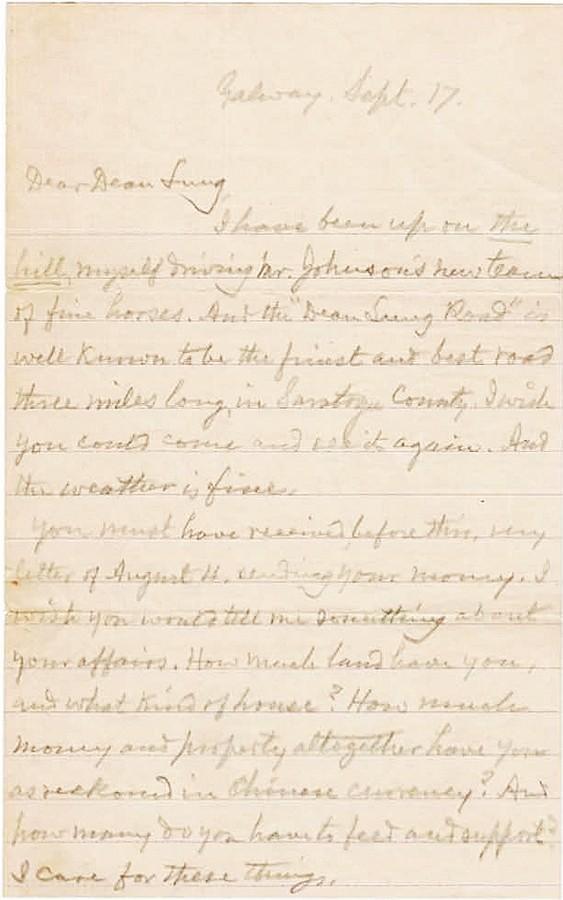 Galway. Sept. 17.
Dear Dean Lung
I have been up on the
hill, myself driving Mr. Johnson's new team
of fine horses. And the "Dean Lung Road" is
well known to be the finest and best road
three miles long, in Saratoga County. I wish
you could come and see it again. And
the weather is fine.
You must have received before this, my
letter of August 11. sending your money. I
wish you would tell me something about
your affairs. How much land have you,
and what kind of house? How much
money and property altogether have you
as reckoned in Chinese currency? And
how many do you have to feed and support?
I care for these things.